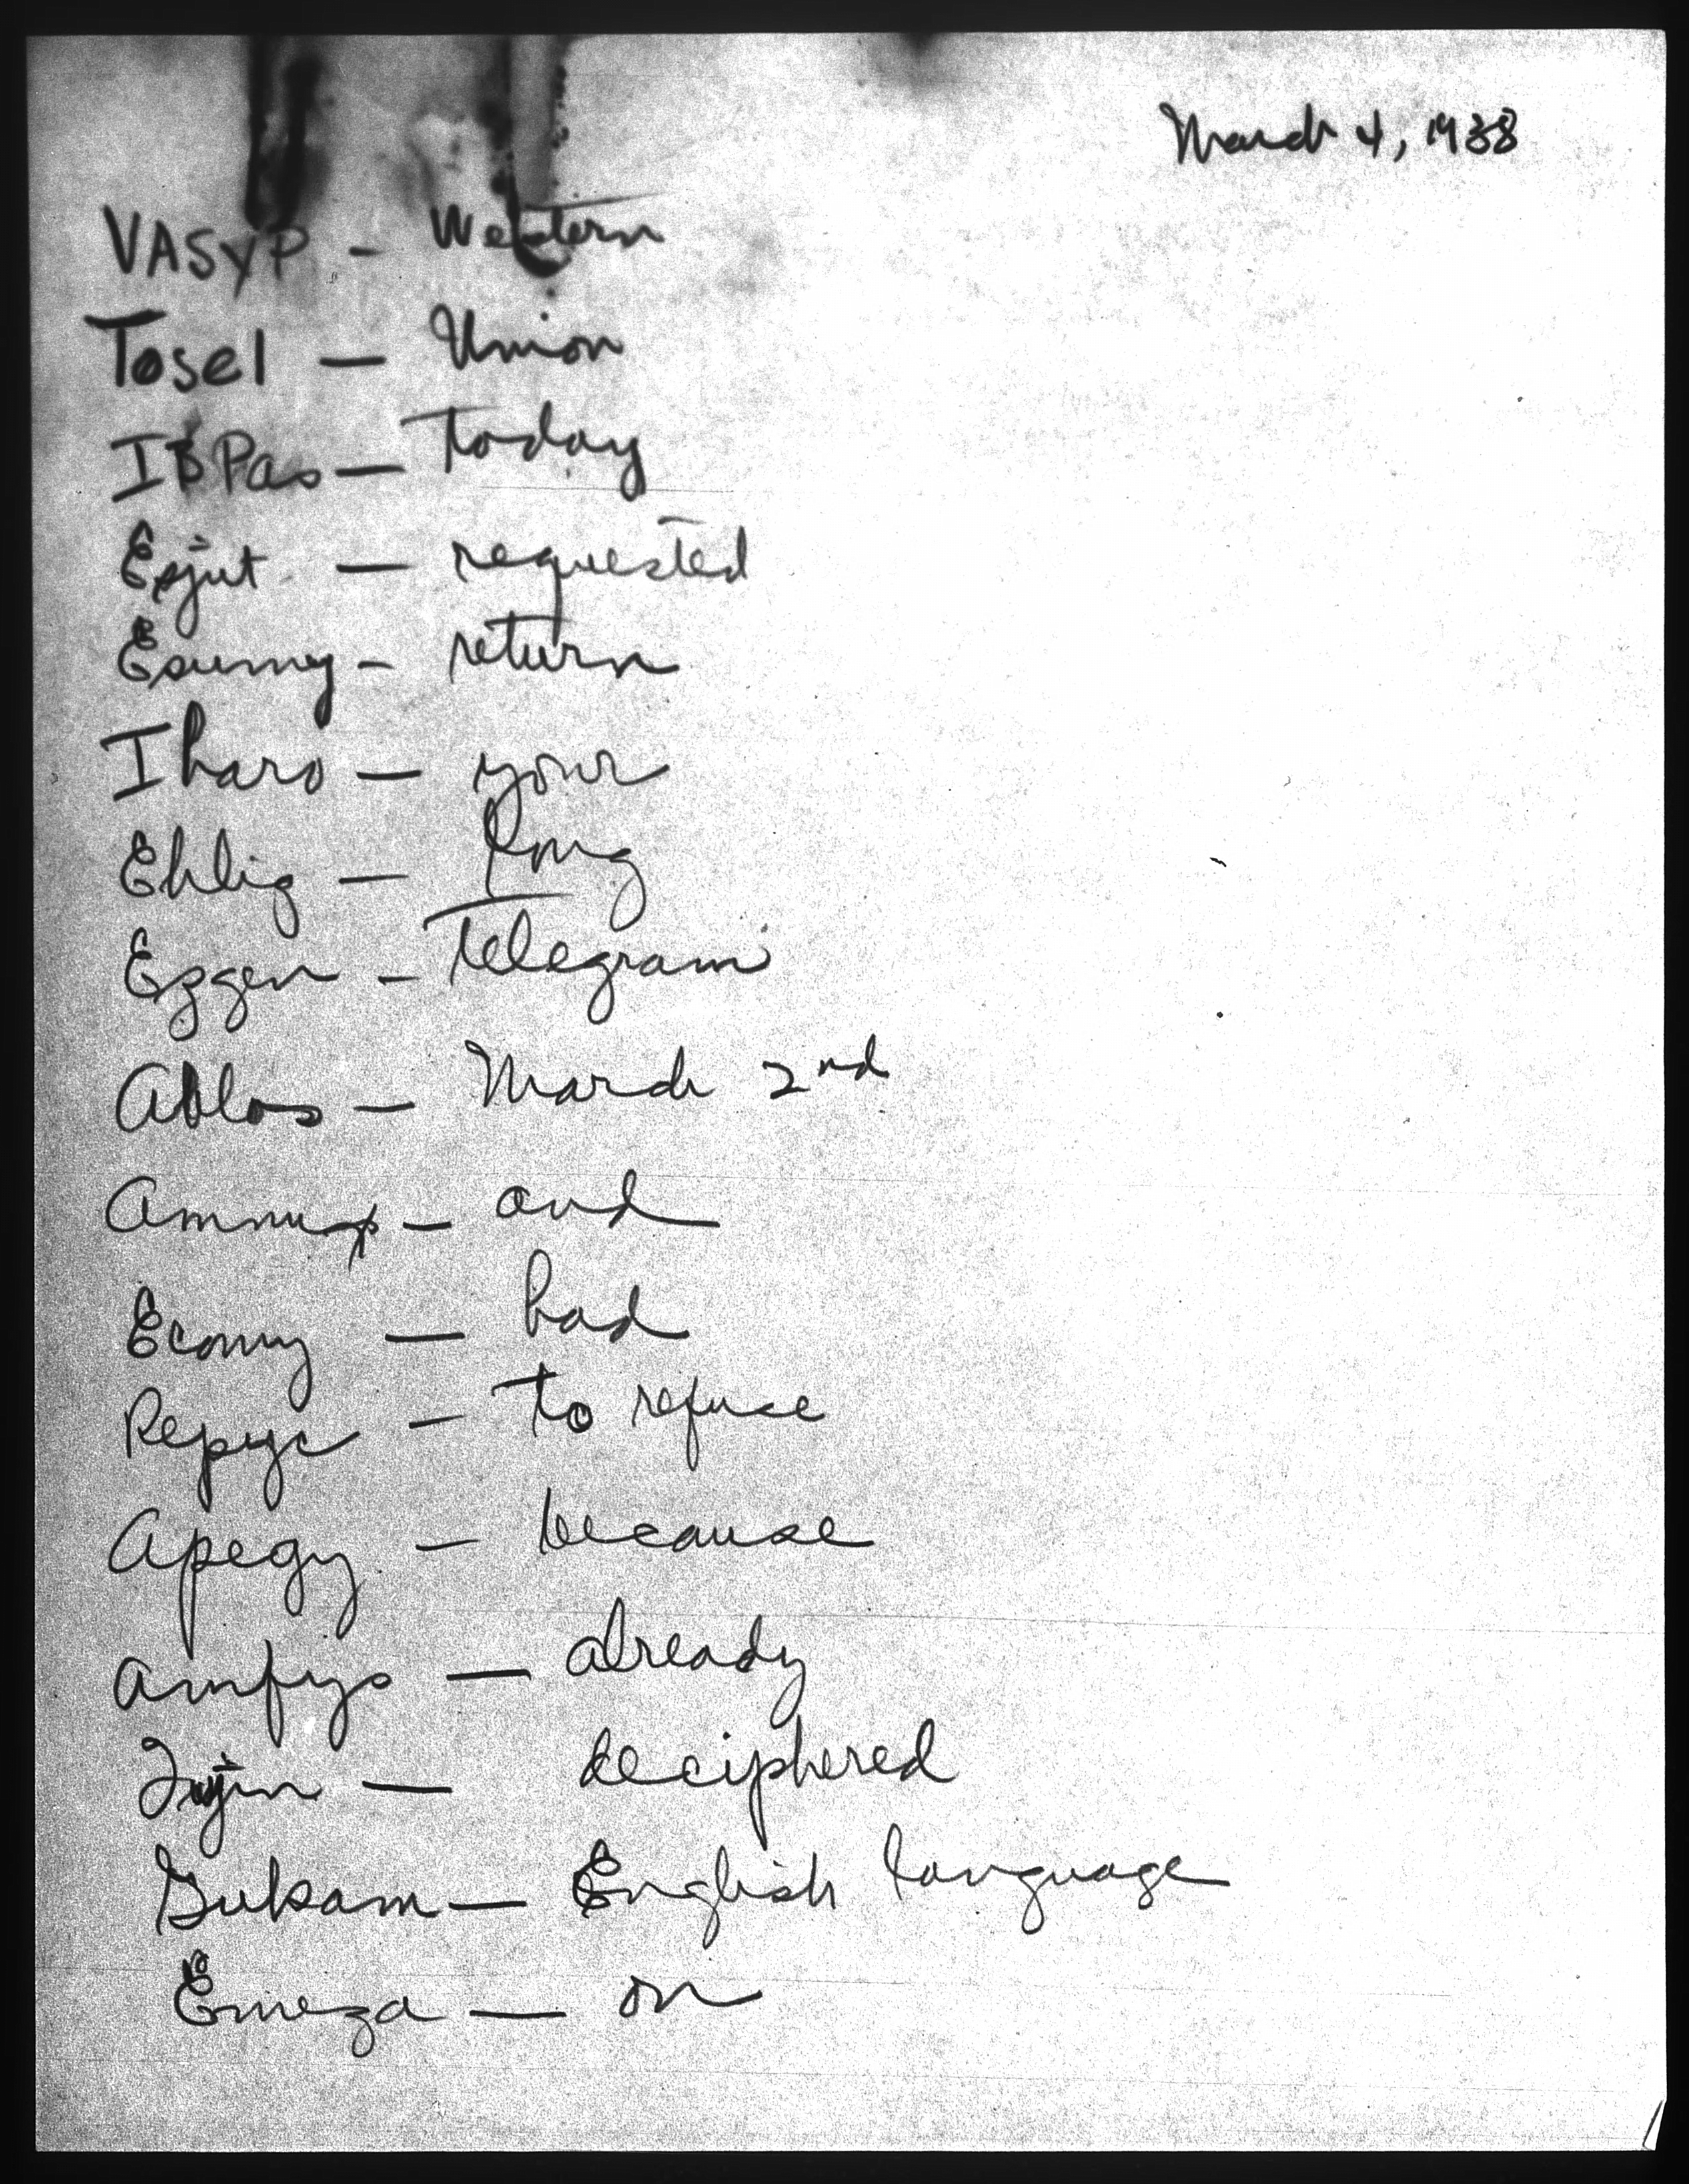 March 4, 1938
VASYP - Western
Tosel — Union
IBPas — Today
Esjut — requested
Esumy - return
Iharo — your
Ehlig — long
Ezgen - Telegram
Ablos — March 2nd
Ammup - and
Ecomy — had
Repyc - to refuse
Apegy - because
Amfys — already
— deciphered
Gukam — English language
Emeza — on